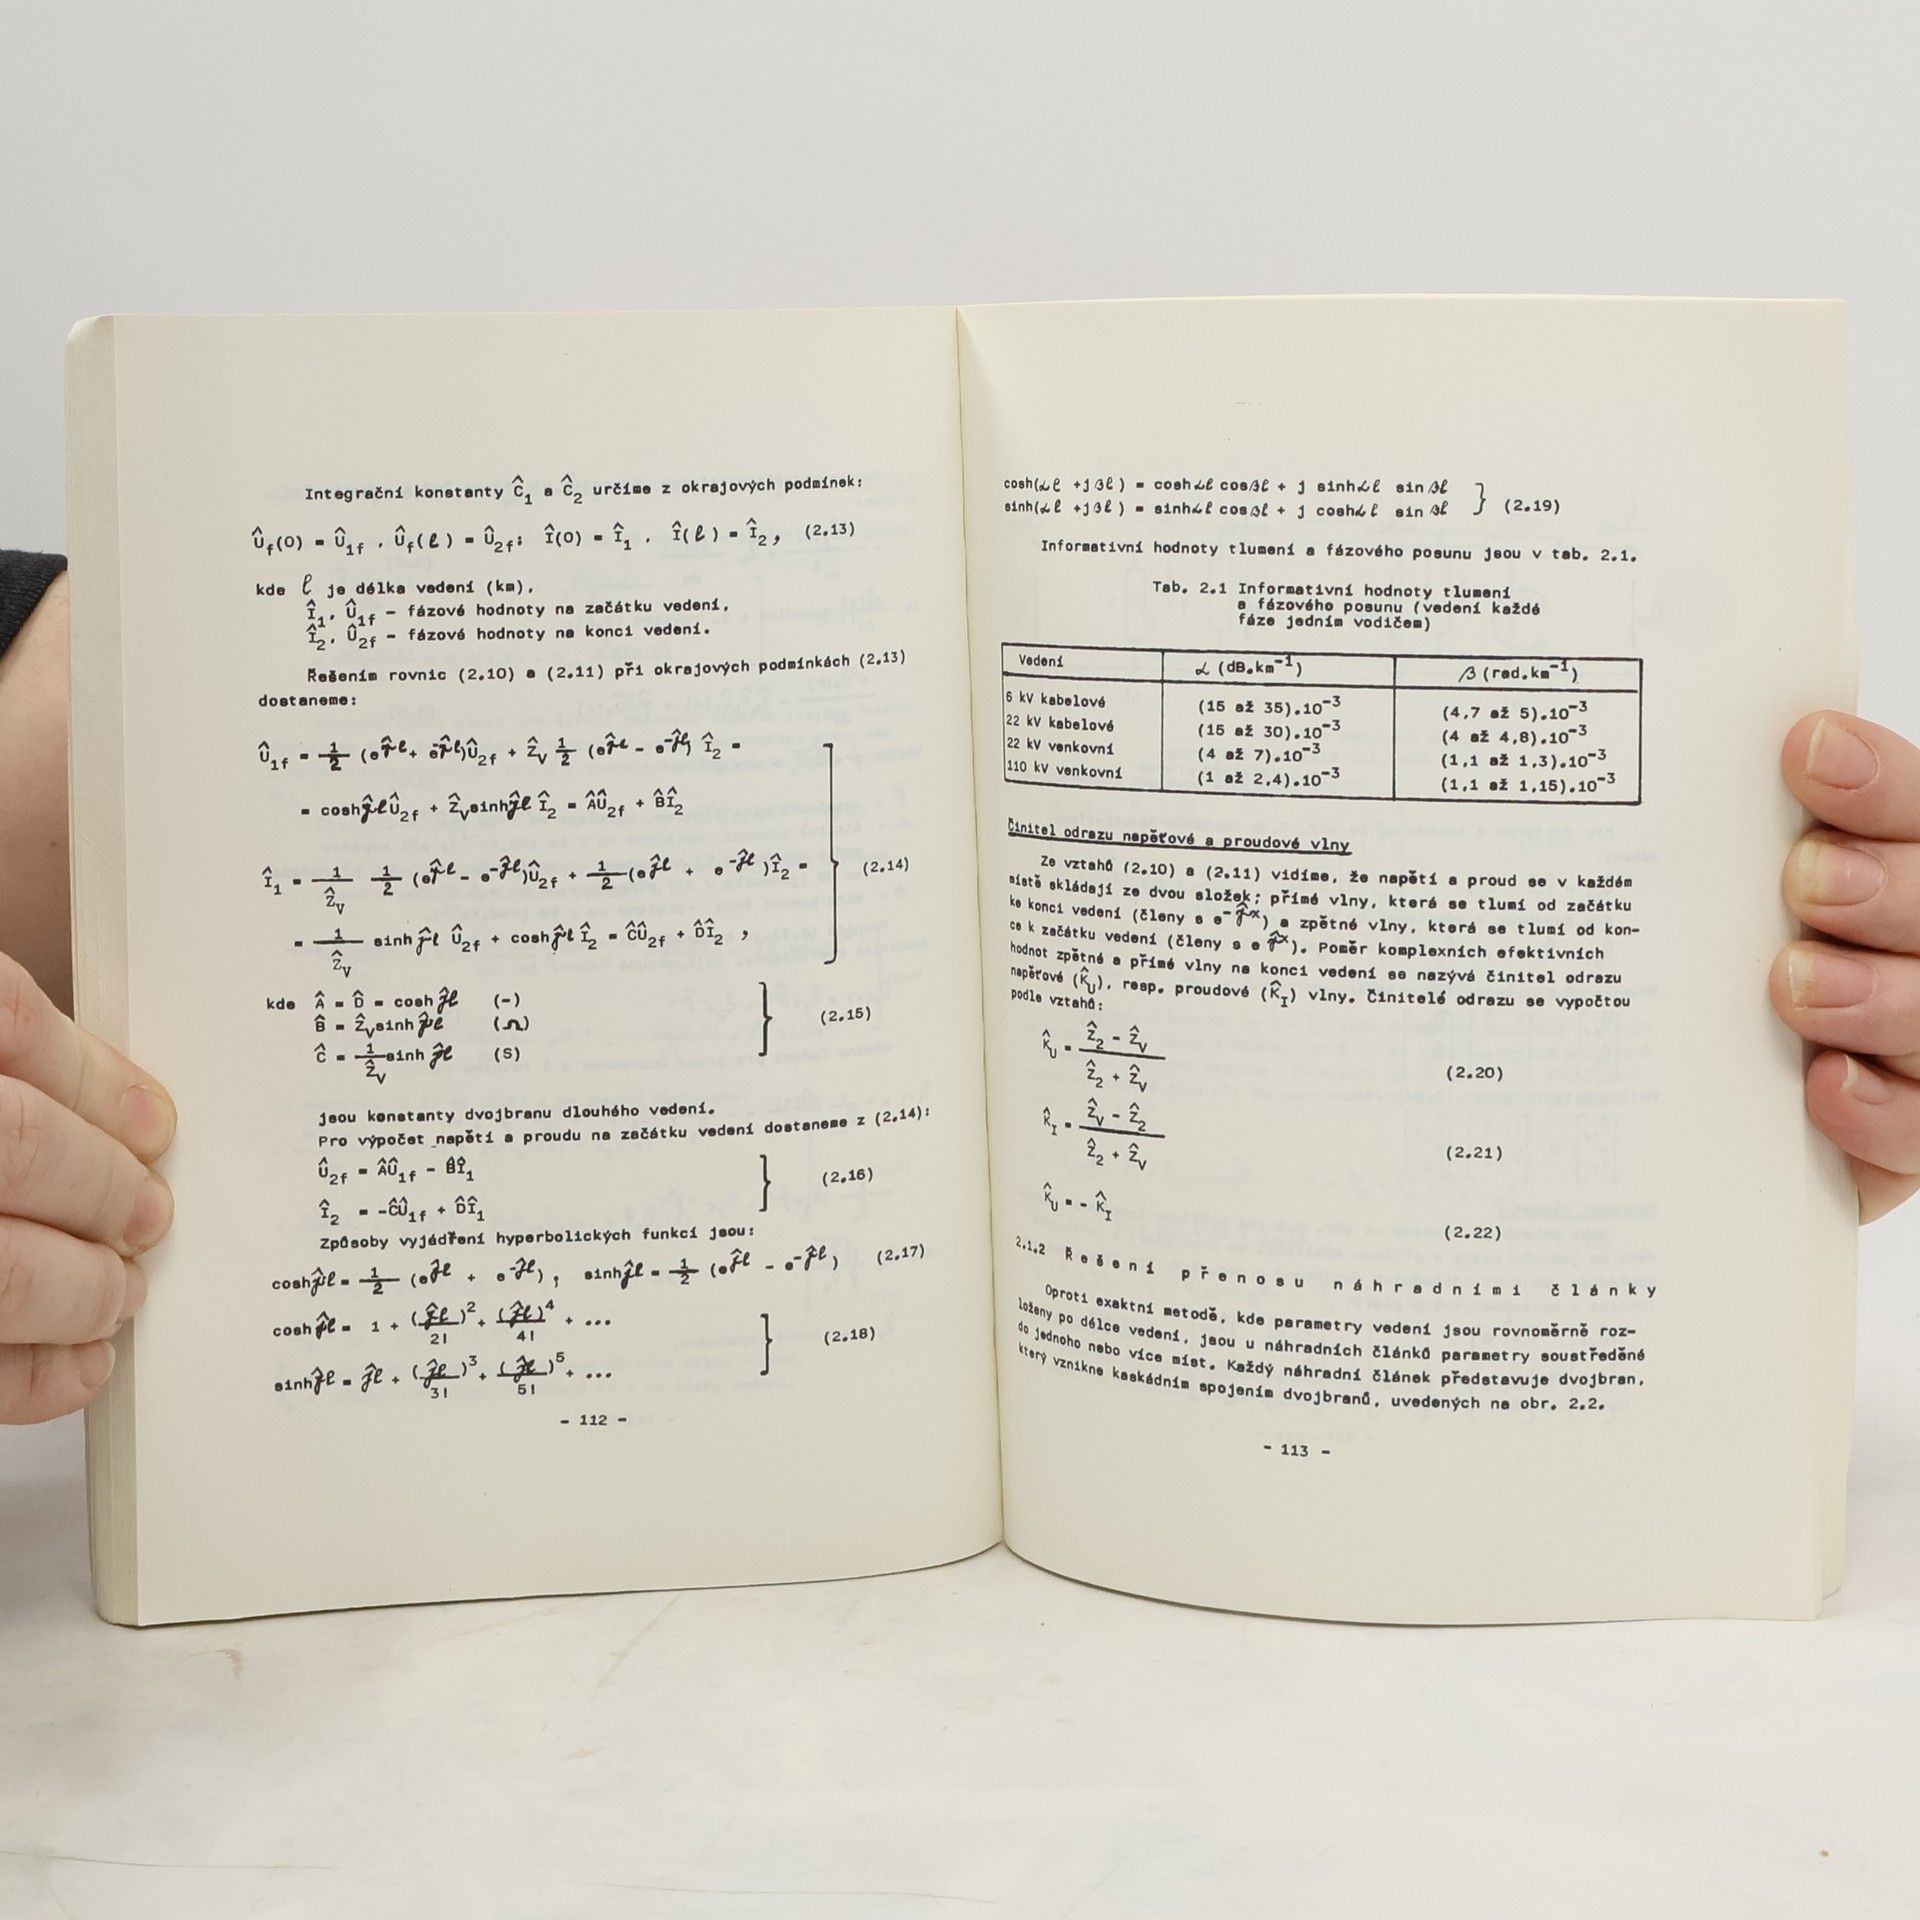 Integrační konstanty Ĉ₁ a Ĉ₂ určíme z okrajových podmínek:
Û_f(0) = Û_1f , Û_f(ℓ) = Û_2f; Î(0) = Î₁ , Î(ℓ) = Î₂, (2.13)
kde ℓ je délka vedení (km),
Î₁, Û_1f – fázové hodnoty na začátku vedení,
Î₂, Û_2f – fázové hodnoty na konci vedení.
Řešením rovnic (2.10) a (2.11) při okrajových podmínkách (2.13)
dostaneme:
Û_1f = 1/2 (e^γ̂ℓ + e^-γ̂ℓ)Û_2f + Ẑ_V 1/2 (e^γ̂ℓ - e^-γ̂ℓ) Î₂ =
= coshγ̂ℓÛ_2f + Ẑ_Vsinhγ̂ℓ Î₂ = ÂÛ_2f + B̂Î₂
Î₁ = 1/Ẑ_V 1/2 (e^γ̂ℓ - e^-γ̂ℓ)Û_2f + 1/2 (e^γ̂ℓ + e^-γ̂ℓ)Î₂ = (2.14)
= 1/Ẑ_V sinh γ̂ℓ Û_2f + coshγ̂ℓ Î₂ = ĈÛ_2f + D̂Î₂ ,
kde Â = D̂ = cosh γ̂ℓ (-)
B̂ = Ẑ_Vsinh γ̂ℓ (Ω) (2.15)
Ĉ = 1/Ẑ_V sinh γ̂ℓ (S)
jsou konstanty dvojbranu dlouhého vedení.
Pro výpočet napětí a proudu na začátku vedení dostaneme z (2.14):
Û_2f = ÂÛ_1f - B̂Î₁
(2.16)
Î₂ = -ĈÛ_1f + D̂Î₁
Způsoby vyjádření hyperbolických funkcí jsou:
coshγ̂ℓ = 1/2 (e^γ̂ℓ + e^-γ̂ℓ), sinhγ̂ℓ = 1/2 (e^γ̂ℓ - e^-γ̂ℓ) (2.17)
coshγ̂ℓ = 1 + (γ̂ℓ)²/2! + (γ̂ℓ)⁴/4! + ...
(2.18)
sinhγ̂ℓ = γ̂ℓ + (γ̂ℓ)³/3! + (γ̂ℓ)⁵/5! + ...
- 112 -
cosh(αℓ +jβℓ) = coshαℓ cosβℓ + j sinhαℓ sin βℓ
sinh(αℓ +jβℓ) = sinhαℓ cosβℓ + j coshαℓ sin βℓ (2.19)
Informativní hodnoty tlumení a fázového posunu jsou v tab. 2.1.
Tab. 2.1 Informativní hodnoty tlumení
a fázového posunu (vedení každé
fáze jedním vodičem)
Vedení α (dB.km⁻¹) β (rad.km⁻¹)
6 kV kabelové (15 až 35).10⁻³ (4,7 až 5).10⁻³
22 kV kabelové (15 až 30).10⁻³ (4 až 4,8).10⁻³
22 kV venkovní (4 až 7).10⁻³ (1,1 až 1,3).10⁻³
110 kV venkovní (1 až 2,4).10⁻³ (1,1 až 1,15).10⁻³
Činitel odrazu napěťové a proudové vlny
Ze vztahů (2.10) a (2.11) vidíme, že napětí a proud se v každém
místě skládají ze dvou složek; přímé vlny, která se tlumí od začátku
ke konci vedení (členy s e^-γ̂x) a zpětné vlny, která se tlumí od kon-
ce k začátku vedení (členy s e^γ̂x). Poměr komplexních efektivních
hodnot zpětné a přímé vlny na konci vedení se nazývá činitel odrazu
napěťové (K̂_U), resp. proudové (K̂_I) vlny. Činitelé odrazu se vypočtou
podle vztahů:
K̂_U = (Ẑ₂ - Ẑ_V)/(Ẑ₂ + Ẑ_V) (2.20)
K̂_I = (Ẑ_V - Ẑ₂)/(Ẑ₂ + Ẑ_V) (2.21)
K̂_U = - K̂_I (2.22)
2.1.2 Řešení přenosu náhradními články
Oproti exaktní metodě, kde parametry vedení jsou rovnoměrně roz-
loženy po délce vedení, jsou u náhradních článků parametry soustředěné
do jednoho nebo více míst. Každý náhradní článek představuje dvojbran,
který vznikne kaskádním spojením dvojbranů, uvedených na obr. 2.2.
- 113 -